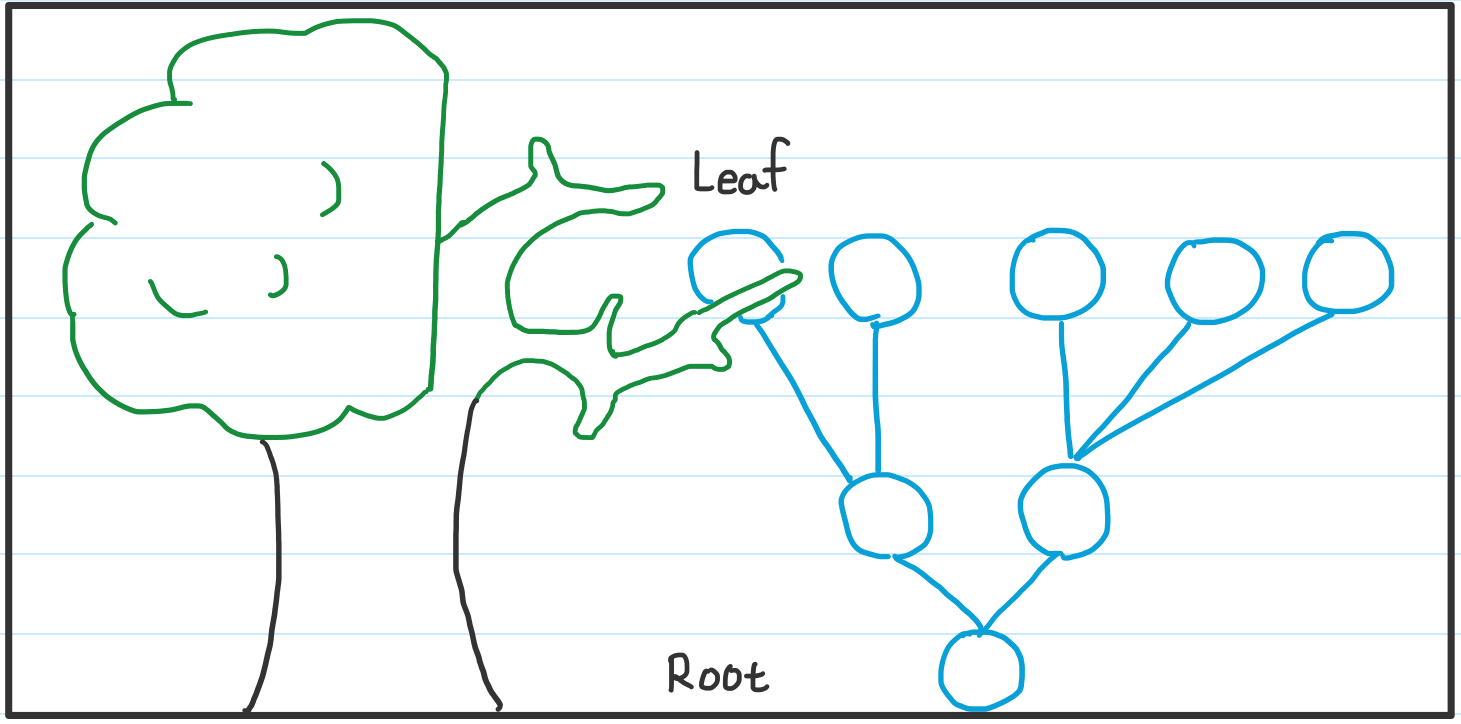 Leaf
Root